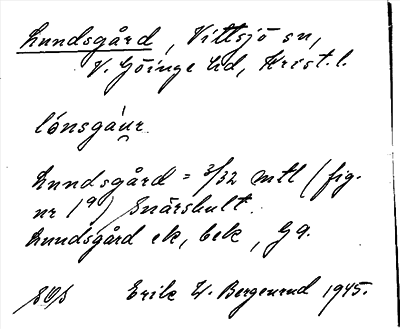 Lundsgård, Vittsjö sn,
V. Göinge hd, Krist. l.
lónsgàu̯r
Lundsgård = 3/32 mtl (fig.
nr 1a) Snärshult.
Lundsgård ek, bek, Ga.
Erik W. Bergenrud 1945.